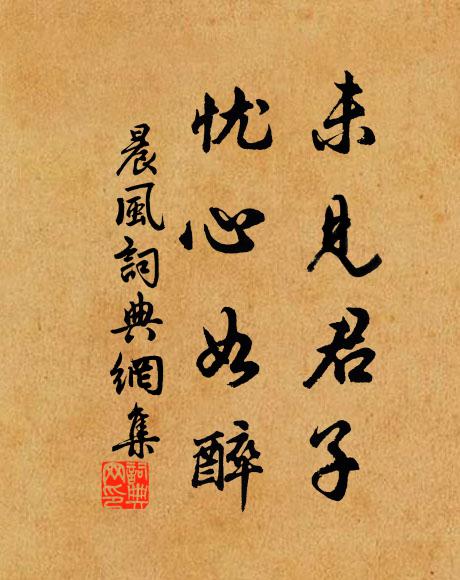 未見君子
忧心如醉
晨風詞典網集
詞典网印